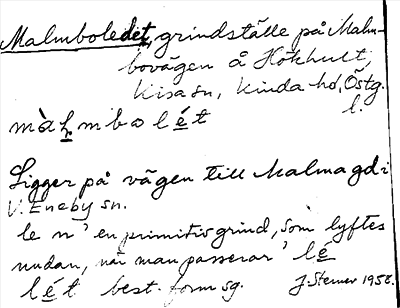 Malmboledet, grindställe på Malm-
bovägen å Hökhult,
Kisa sn, Kinda hd, Östg.
l.
màl̥mbolét
Ligger på vägen till Malma gd i
V. Eneby sn.
le n' en primitiv grind, som lyftes
undan, när man passerar' le
lét best. form sg. J. Sterner 1958.